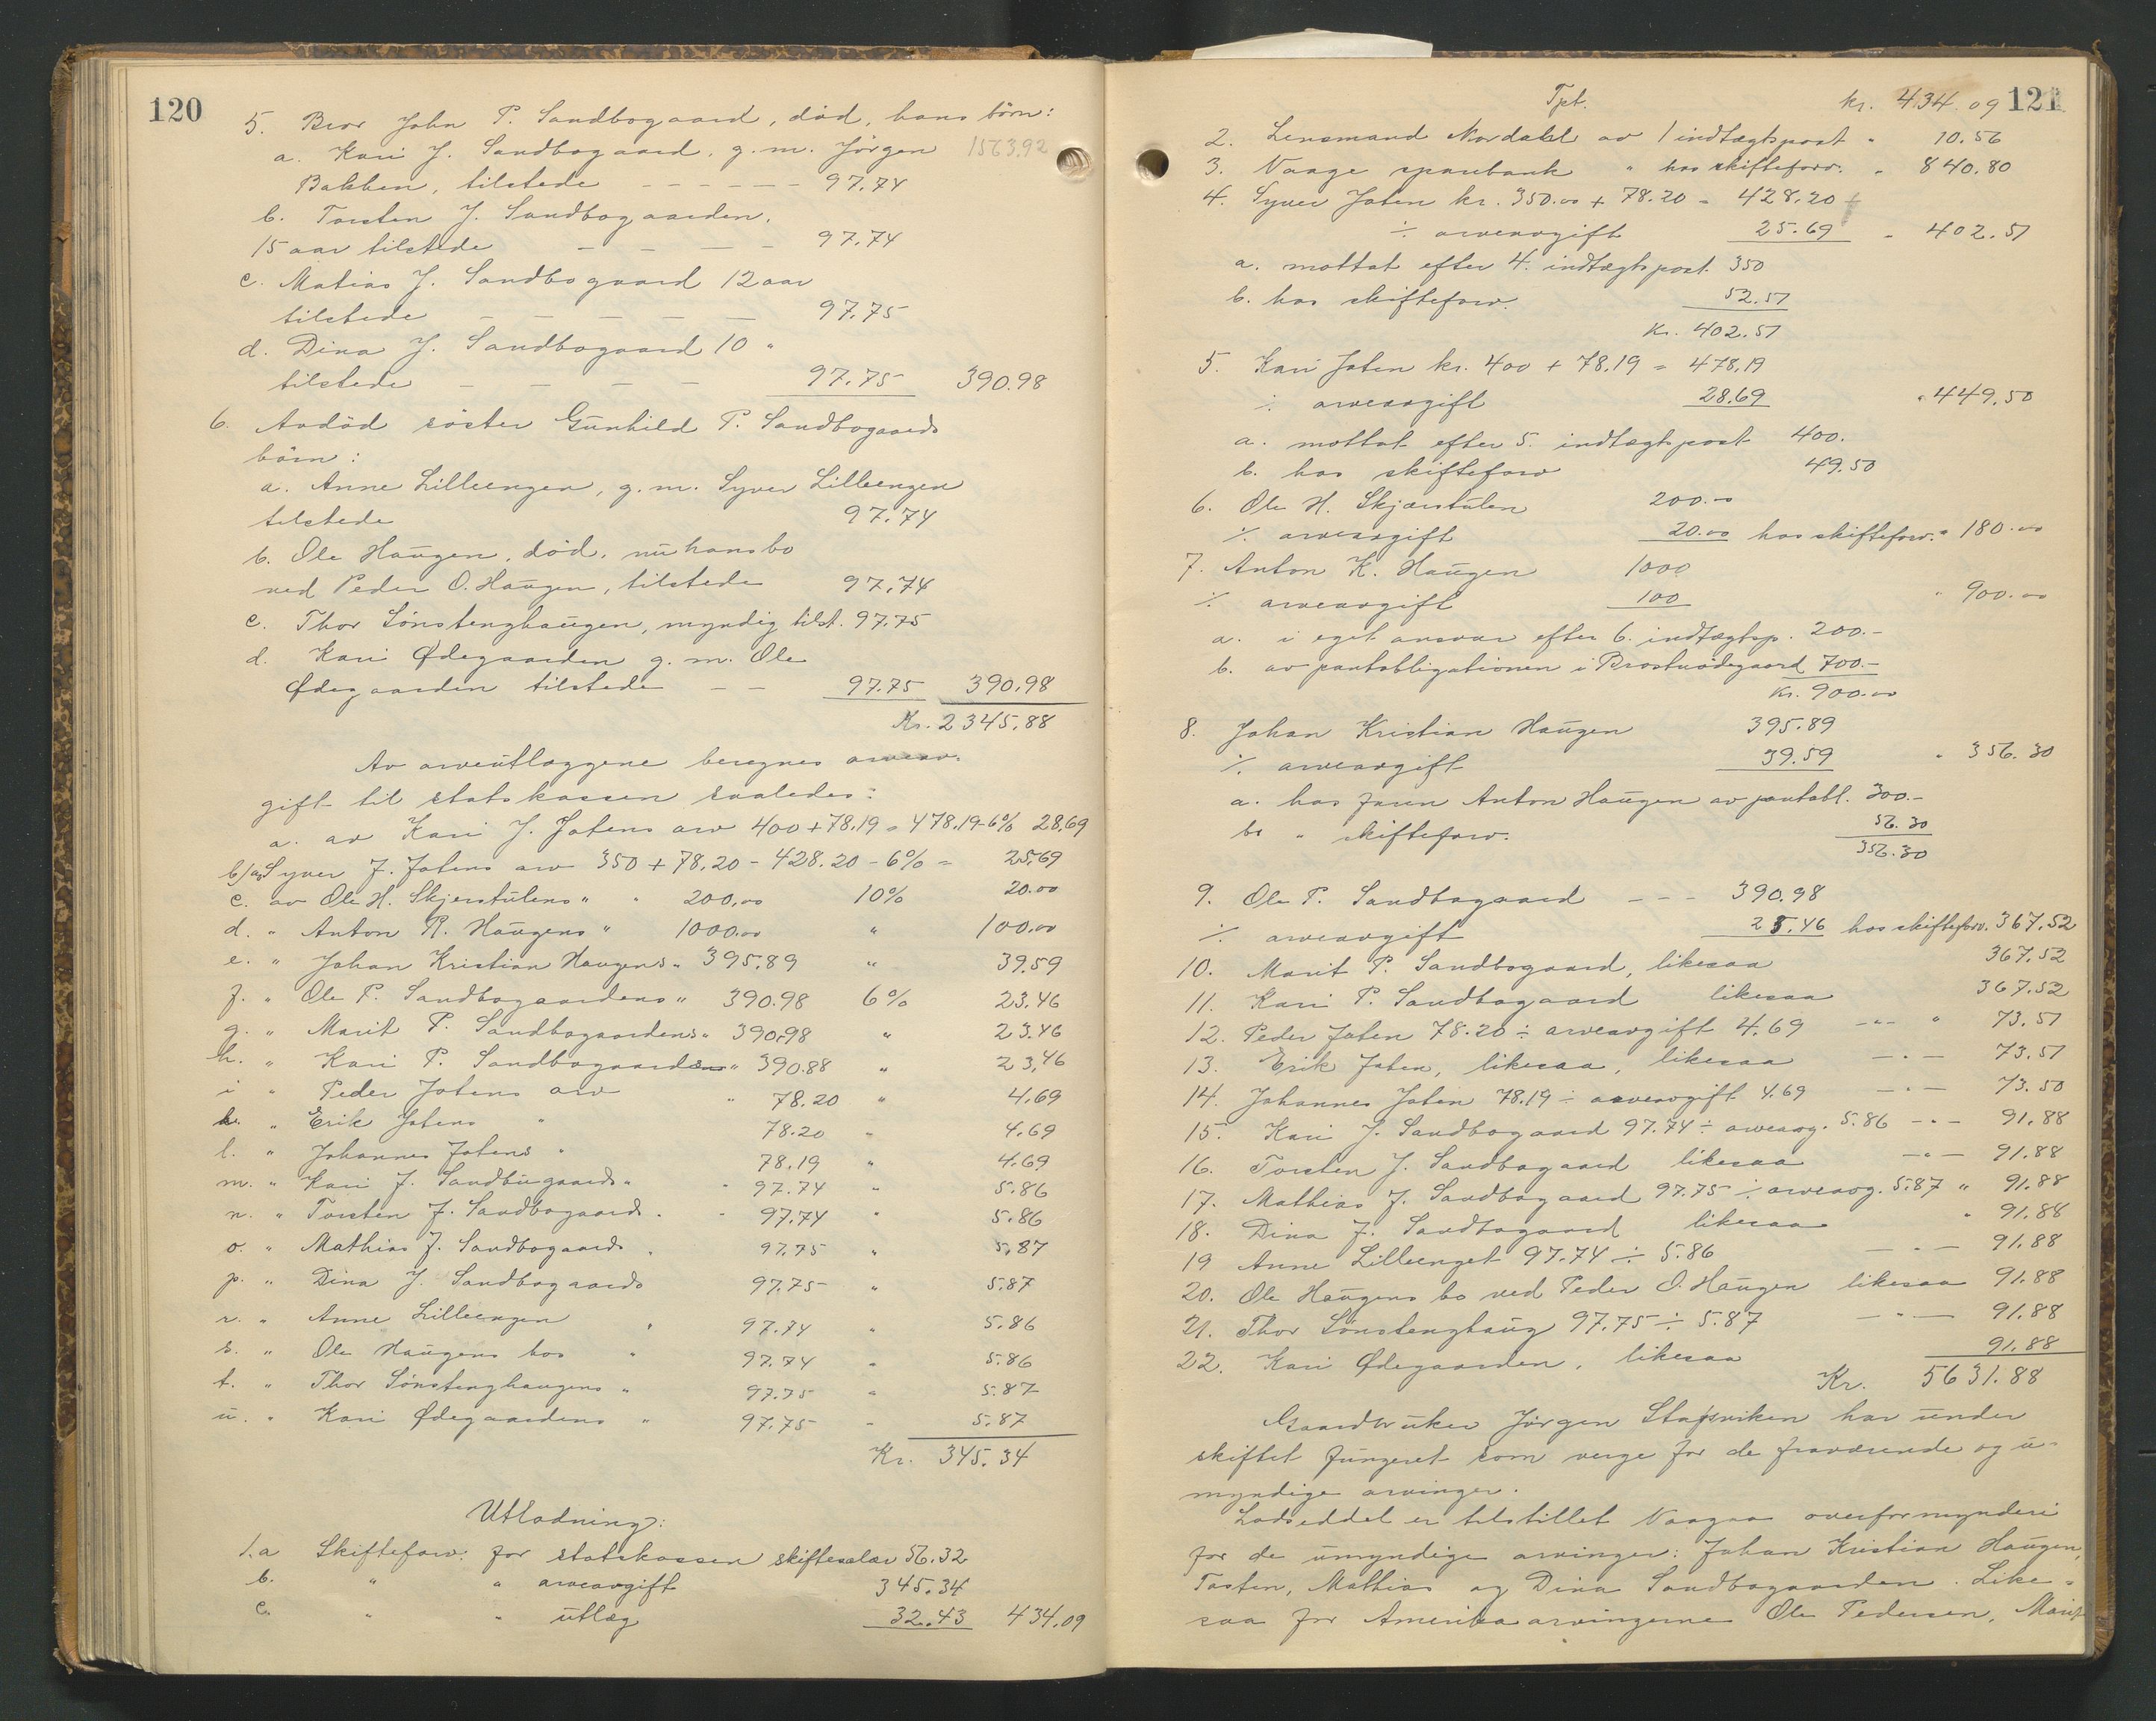 120
5. Bror John P. Sandbogaard, død, hans børn:
a. Kari J. Sandbogaard, g. m. Jörgen 1563.92
Bakken, tilstede - - - - - - 97.74
b. Torsten J. Sandbogaarden,
15 aar tilstede - - - - 97.74
c. Matias J. Sandbogaard 12 aar
tilstede - - - - - 97.75
d. Dina J. Sandbogaard 10 "
tilstede - - - - 97.75 390.98
6. Avdöd söster Gunhild P. Sandbogaards
börn:
a. Anne Lilleengen, g. m. Syver Lilleengen
tilstede 97.74
b. Ole Haugen, död, nu hans bo
ved Peder O. Haugen, tilstede 97.74
c. Thor Sönstenghaugen, myndig tilst. 97.75
d. Kari Ødegaarden g. m. Ole
Ødegaarden tilstede - - 97.75 390.98
Kr. 2345.88
Av arveutlæggene beregnes arveav-
gift til statskassen saaledes:
a. av Kari J. Jotens arv 400 + 78.19 = 478.19 - 6% 28.69
b/ av Syver J. Jotens arv 350 + 78.20 - 428.20 - 6% = 25.69
c. av Ole H. Skjerstulens " " 200.00 10% 20.00
d. " Anton K. Haugens " 1000.00 " 100.00
e. " Johan Kristian Haugens " 395.89 " 39.59
f. " Ole P. Sandbogaardens " 390.98 6% 23.46
g. " Marit P. Sandbogaardens " 390.98 " 23.46
h. " Kari P. Sandbogaardens " 390.88 " 23.46
i " Peder Jotens arv " 78.20 " 4.69
k. " Erik Jotens " 78.20 " 4.69
l. " Johannes Jotens " 78.19 " 4.69
m. " Kari J. Sandbugaards " " 97.74 " 5.86
n. " Torsten J. Sandbogaards " " 97.74 " 5.86
o. " Mathias J. Sandbogaards " 97.75 " 5.87
p. " Dina J. Sandbogaards 97.75 " 5.87
r. " Anne Lilleengen " 97.74 " 5.86
s. " Ole Haugens bos " 97.74 " 5.86
t. " Thor Sönstenghaugens " 97.75 " 5.87
u. " Kari Ødegaardens " 97.75 " 5.87
Kr. 345.34
Utlodning:
1.a Skifteforv: for statskassen skiftesalær 56.32
b. " " arveavgift 345.34
c. " " utlæg 32.43 434.09
121
Tpt. kr. 434.09
2. Lensmand Nordahl av 1 indtægtspost " 10.56
3. Vaage sparebank " hos skifteforv. " 840.80
4. Syver Joten kr. 350.00 + 78.20 = 428.20
÷ arveavgift 25.69 " 402.51
a. mottat efter 4. indtægtspost 350
b. hos skifteforv. 52.51
Kr. 402.51
5. Kari Joten kr. 400 + 78.19 = 478.19
÷ arveavgift 28.69 " 449.50
a. mottat efter 5. indtægtspost 400.
b. hos skifteforv 49.50
6. Ole H. Skjærstulen 200.-
÷ arveavgift 20.00 hos skifteforv. " 180.00
7. Anton K. Haugen 1000
÷ arveavgift 100 " 900.00
a. i eget ansvar efter 6. indtægtsp. 200.-
b. av pantobligationen i Brostuødegaard 700.-
Kr. 900.00
8. Johan Kristian Haugen 395.89
÷ arveavgift 39.59 " 356.30
a. hos faren Anton Haugen av pantobl. 300.-
b. " skifteforv. 56.30
356.30
9. Ole P. Sandbogaard - - - 390.98
÷ arveavgift 23.46 hos skifteforv. 367.52
10. Marit P. Sandbogaard, likesaa 367.52
11. Kari P. Sandbogaard likesaa 367.52
12. Peder Joten 78.20 ÷ arveavgift 4.69 -"- " 73.51
13. Erik Joten, likesaa, likesaa -"- 73.51
14. Johannes Joten 78.19 ÷ arveavgift 4.69 -"- 73.50
15. Kari J. Sandbogaard 97.74 ÷ arveavg. 5.86 -"- 91.88
16. Torsten J. Sandbogaard likesaa -"- 91.88
17. Mathias J. Sandbogaard 97.75 ÷ arveavg. 5.87 " 91.88
18. Dina J. Sandbogaard likesaa " 91.88
19 Anne Lilleenget 97.74 ÷ 5.86 -"- 91.88
20. Ole Haugens bo ved Peder O. Haugen likesaa 91.88
21. Thor Sönstenghaug 97.75 ÷ 5.87 -"- 91.88
22. Kari Ødegaarden, likesaa 91.88
Kr. 5631.88
Gaardbruker Jörgen Stapsviken har under
skiftet fungeret som verge for de fraværende og u-
myndige arvinger.
Lodseddel er tilstillet Vaagaa overformynderi
for de umyndige arvinger: Johan Kristian Haugen,
Tosten, Mathias og Dina Sandbogaarden. Like-
saa for Amerikaarvingerne Ole Pedersen, Marit